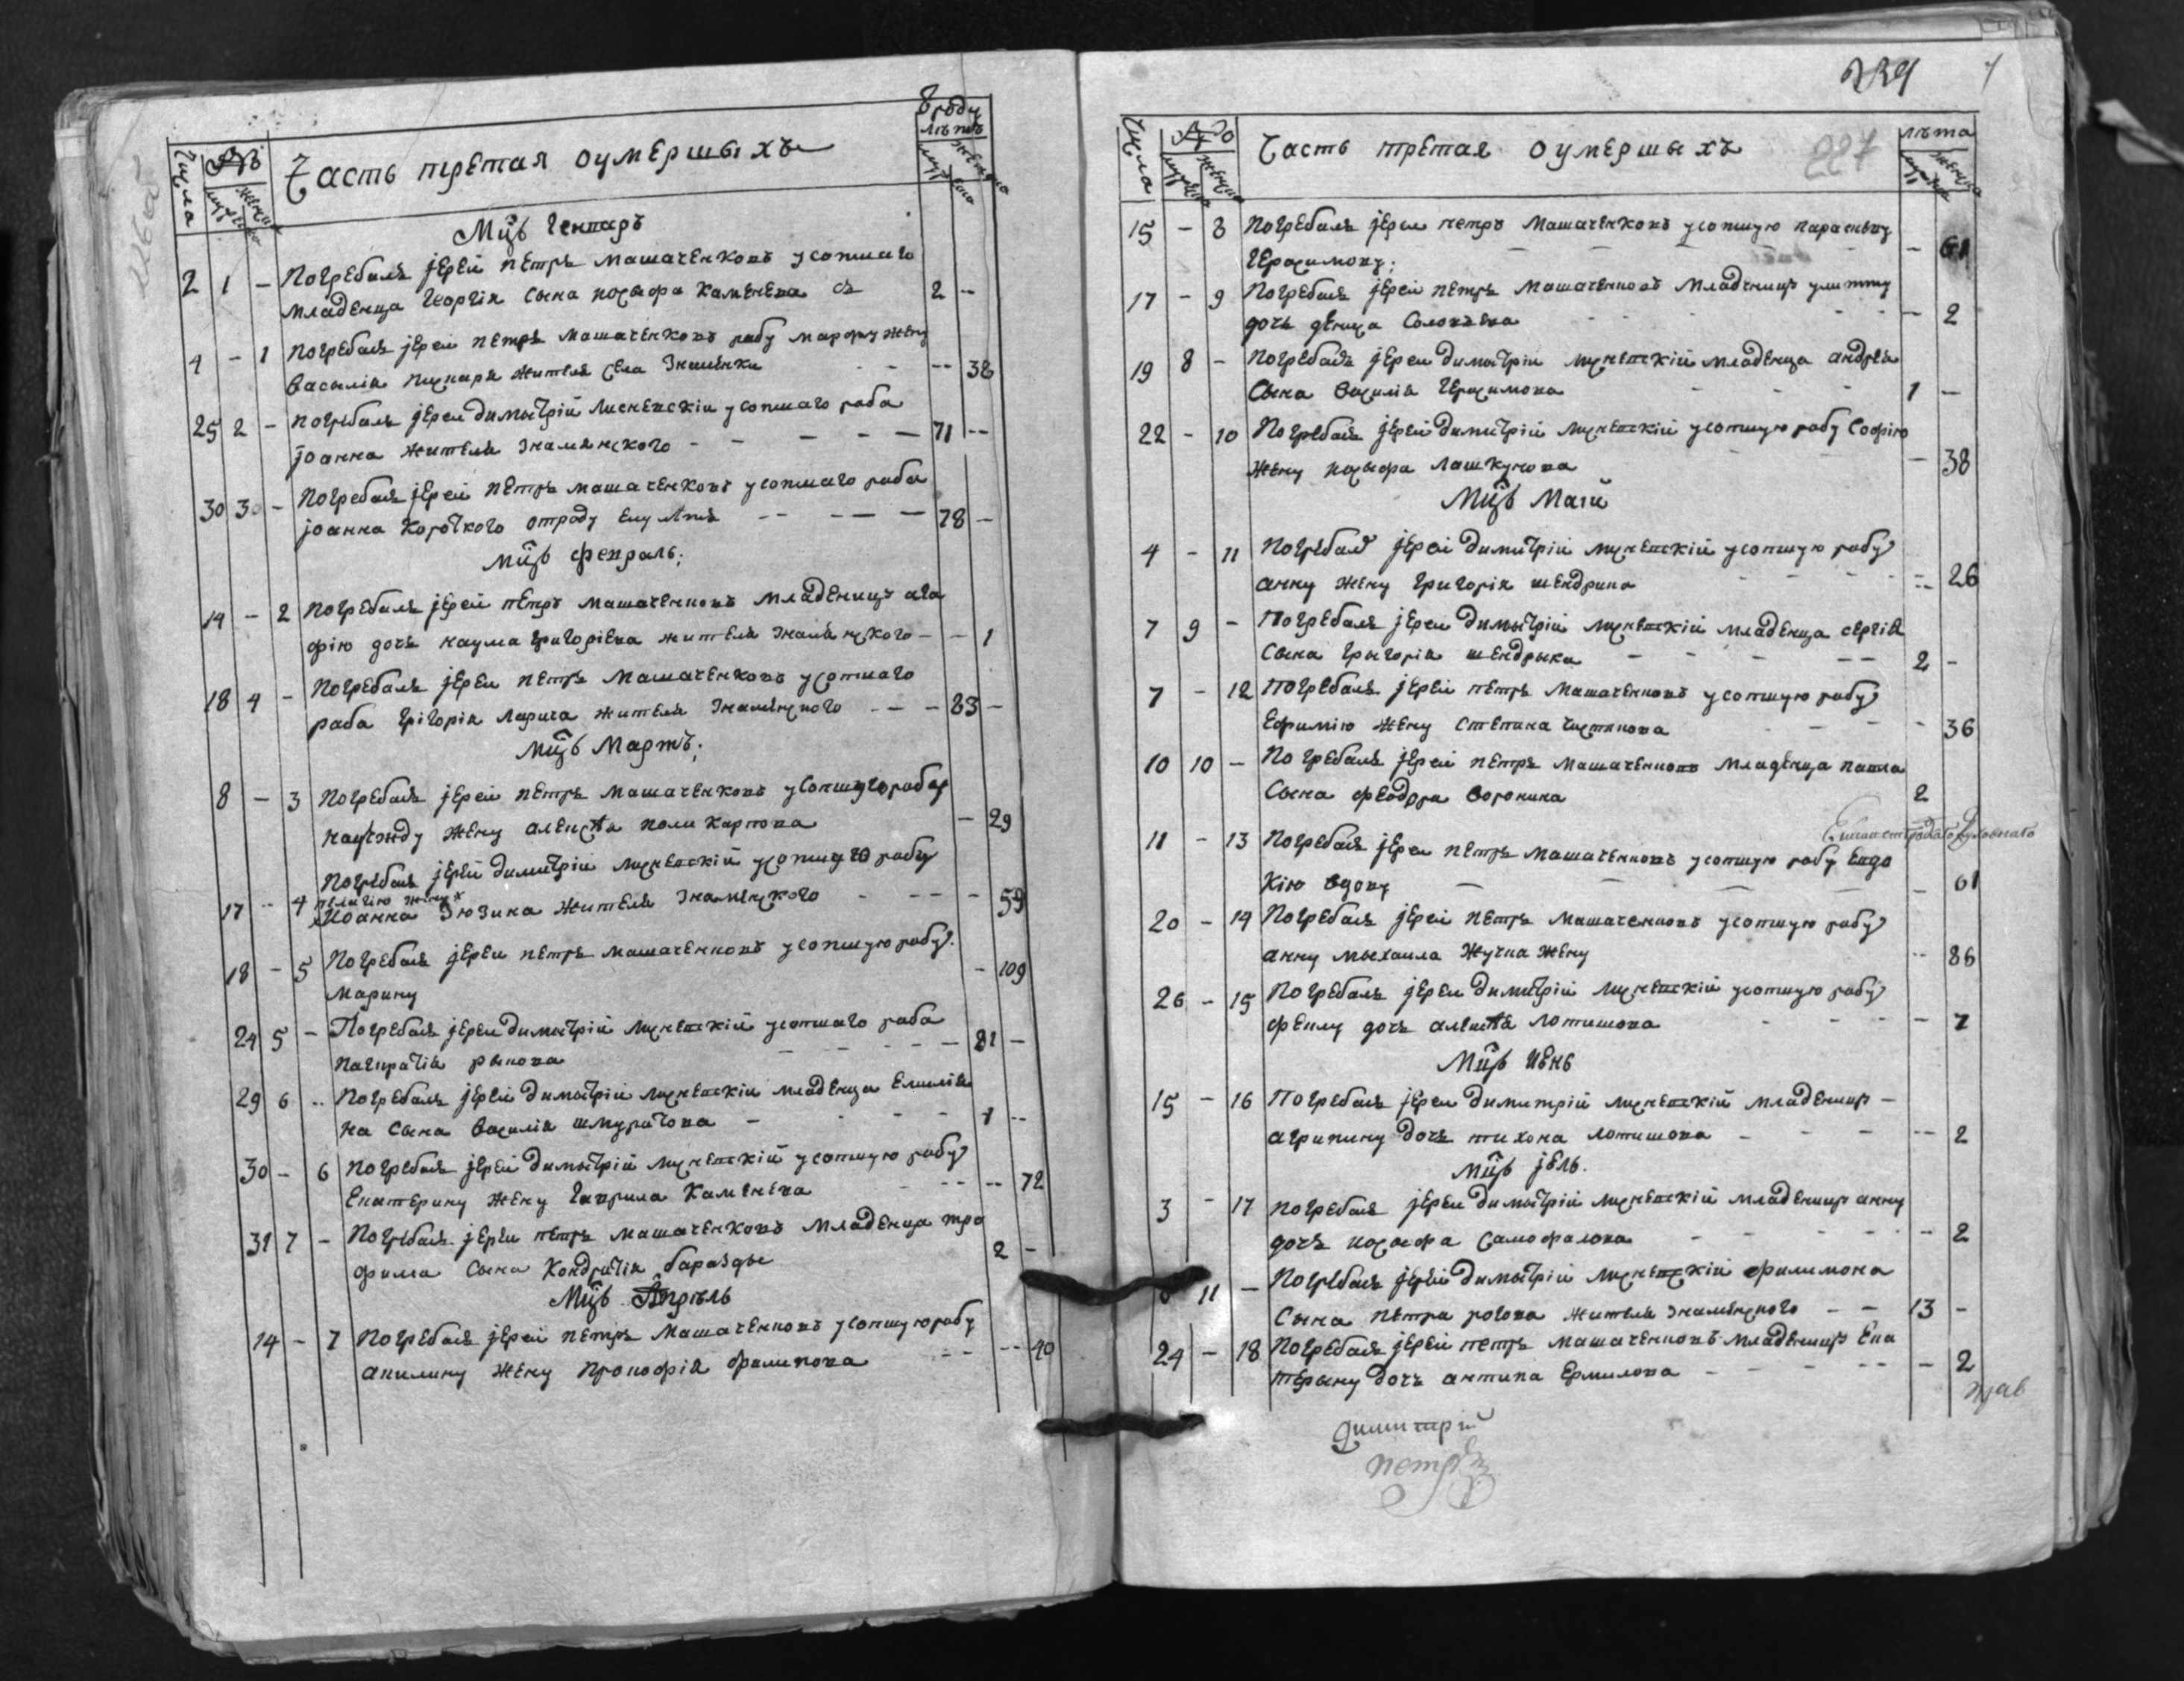 Часть третая оумершыхъ
Числа
Мцъ Генварь
2 1 - Погребалъ јерей петръ Машаченковъ усопшаго
младенца Георгія сына иосыфа Каменева 2 --
4 - 1 Погребалъ јереи петръ Машаченковъ рабу марфу жену
Василія жителя села Знаменки - - -- 38
25 2 - Погребалъ јереи димытрій Лисневскіи усопшаго раба
јоанна жителя знаменского - - - - - 71 --
30 3 - Погребалъ јерей петръ машаченковъ усопшаго раба
јоанна Короткого отроду ему летъ -- - - - 78 -
мцъ февраль;
14 - 2 Погребалъ јерей петръ машаченковъ младеницу ага
фію дочь наума григоріева жителя знаменского - - 1
18 4 - Погребалъ јереи петръ Машаченковъ усопшаго
раба григорія жителя Знаменского - - - 83 -
мцъ Мартъ;
8 - 3 Погребалъ јереи петръ машаченковъ усопшую рабу
жену алексѣя поликарпова - 29
Погребалъ јерей димитріи лисневскій усопшую рабу
пелагію жену
17 - 4 Иоанна Зюзина жителя знаменского - - - - 59
18 - 5 Погребалъ јереи петръ машаченковъ усопшую рабу
Марину - 109
24 5 - Погребалъ јереи димытрій лисневскій усопшаго раба
панкратія рыкова - - - - - 81 -
29 6 -- Погребалъ јерей димытрій лисневскіи младенца Емиліа
на сына Василія шмуратова - - - - 1 --
30 - 6 Погребалъ јерей димытрій лисневскій усопшую рабу
Екатерину жену гаврила Каменева - -- -- 72
31 7 - Погребалъ јереи петръ машаченковъ младенца тро
фима сына Кондратія баразды 2 -
Мцъ Апрѣль
14 - 7 Погребалъ јереи петръ Машаченковъ усопшую рабу
акилину жену прокофія филипова -- -- 40
227
Числа Часть третая оумершыхъ лѣта
15 - 8 Погребалъ јереи петръ Машаченковъ усопшую параскову
Герасимову; - - - - - 61
17 - 9 Погребалъ јереи петръ Машаченковъ младеницу улитту
дочь дениса Соловьева - - - - - 2
19 8 - Погребалъ јереи димытріи лисневскій младенца андрея
сына Василія Герасимова - - - 1 -
22 - 10 Погребалъ јерей димитрій лисневскій усопшую рабу Софію
жену иосыфа лашкунова - - - - 38
Мцъ Маій
4 - 11 Погребалъ јереи димитріи лисневскій усопшую рабу
анну жену григорія шендрика - - - - -- 26
7 9 - Погребалъ јереи димытрій лисневскій младенца сергія
сына Грыгорія шендрыка - - - -- 2 -
7 - 12 Погребалъ јереи петръ Машаченковъ усопшую рабу
Ефимію жену Степана - - - 36
10 10 - Погребалъ јерей петръ машаченковъ младенца павла
сына феодора Воронина 2
11 - 13 Погребалъ јереи петръ машаченковъ усопшую рабу Евдо
кію вдову - - - - 61
20 - 14 Погребалъ јерей петръ машаченковъ усопшую рабу
анну мыхаила Жучка жену -- 86
26 - 15 Погребалъ јереи димитрій лисневскій усопшую рабу
феклу дочь алексѣя лотишова - - - - 7
Мцъ июнь
15 - 16 Погребалъ јереи димитрій лисневскій младеницу -
агрипину дочь тихона лотишова - - - -- 2
мцъ јюль.
3 - 17 Погребалъ јереи димытрій лисневскій младеницу анну
дочь иосыфа самофалова - - - - -- 2
11 - Погребалъ јерей димытрій лисневскій филимона
сына петра рогова жителя знаменского - - 13 -
24 - 18 Погребалъ јереи петръ машаченковъ младеницу Ека
терыну дочь антипа Ермилова - - - -- - 2
димитрій
петръ